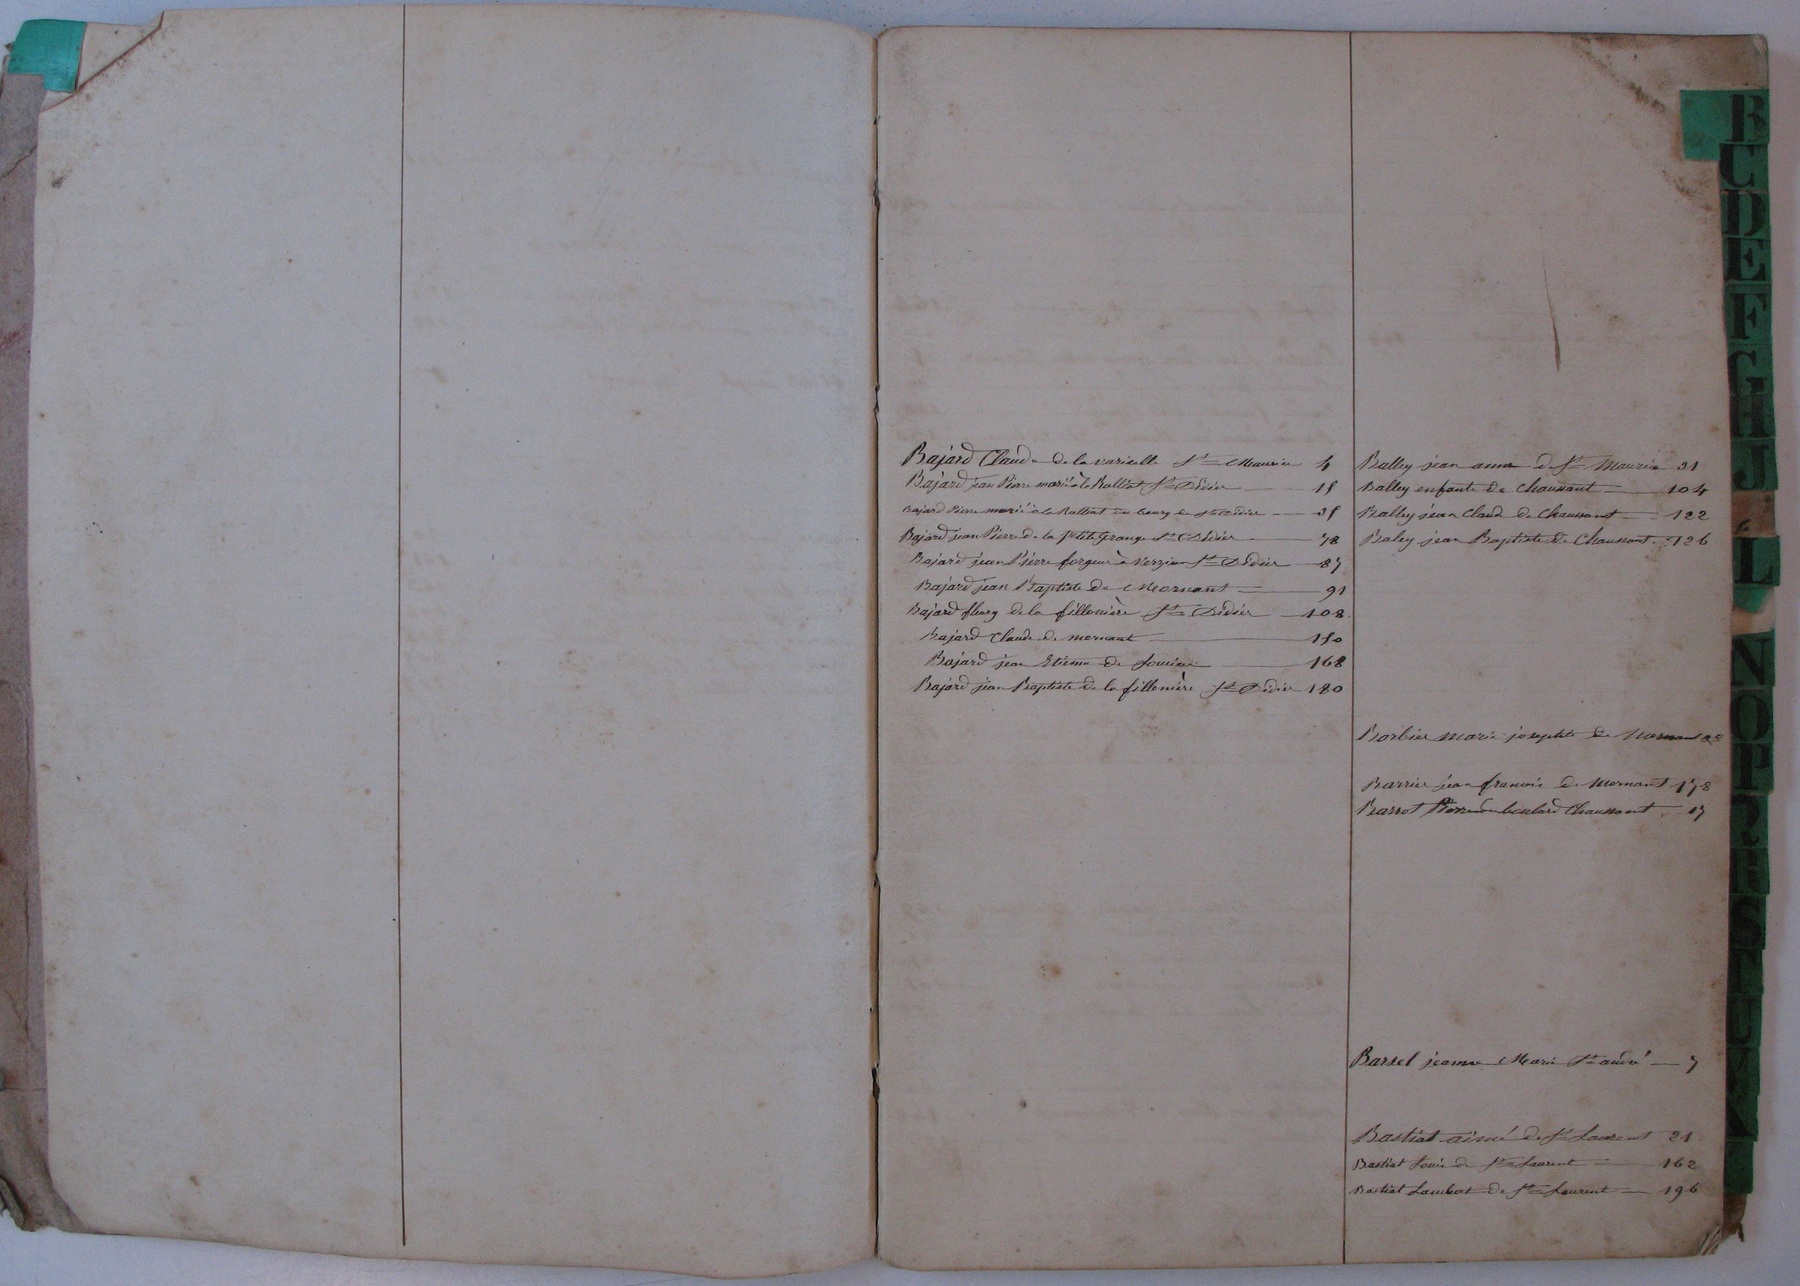 Bajard Claude de la variselle St Maurice 4
Bajard jean Pierre marié à la Ralliat St Didier 15
Bajard Pierre marié à la Ralliat au bourg de St Didier 35
Bajard jean Pierre de la petite Grange St Didier 78
Bajard jean Pierre forgeur à Verzieu St Didier 87
Bajard jean Baptiste de Mornant 91
Bajard fleury de la fillonière St Didier 108
Bajard Claude de mornant 150
Bajard jean Etienne de 168
Bajard jean Baptiste de la fillonière St Didier 180
Balley jean anne de St Maurice 31
Balley enfants de Chaussant 104
Balley jean Claude de Chaussant 122
Baley jean Baptiste de Chaussant 126
Barbier marie josephte de Mornant 88
Barrier jean francois de Mornant 178
Barrot Pierre du boulard Chaussant 17
Barsel jeanne Marie St andré 7
Bastiat aimé de St Laurent 21
Bastiat Louis de St Laurent 162
Bastiat Lambert de St Laurent 196
B
C
D
E
F
G
H
J
L
N
O
P
R
S
T
U